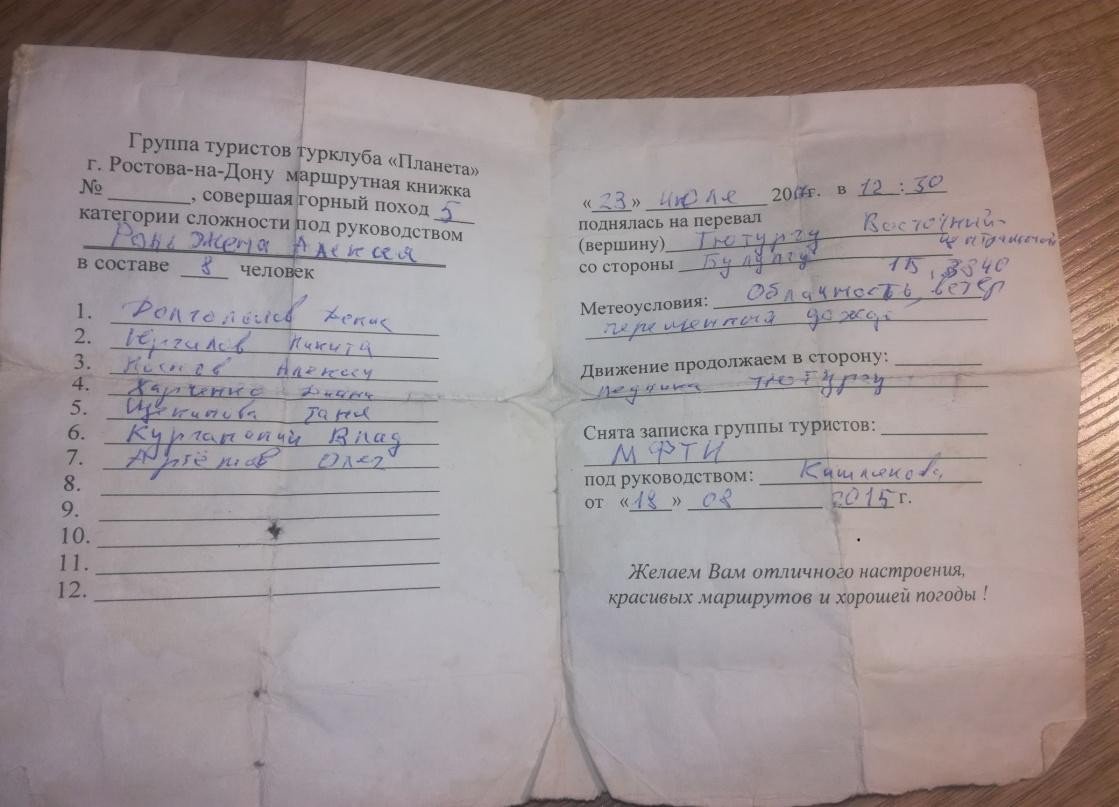 Группа туристов турклуба «Планета»
г. Ростова-на-Дону маршрутная книжка
№ , совершая горный поход 5
категории сложности под руководством
Алексея
в составе 8 человек
1. Долгополов Денис
2. Никита
3. Носков Алексей
4. Харченко Диана
5. Щекинова Таня
6. Влад
7. Артёмов Олег
8.
9.
10.
11.
12.
«23» июля 2017г. в 12 : 30
поднялась на перевал Восточный
(вершину) Тютургу центральный
со стороны Булунгу 1Б, 3340
Метеоусловия: Облачность, ветер
переменный дождь
Движение продолжаем в сторону:
ледника Тютургу
Снята записка группы туристов:
МФТИ
под руководством: Кишлякова
от «18» 08 2015 г.
Желаем Вам отличного настроения,
красивых маршрутов и хорошей погоды !